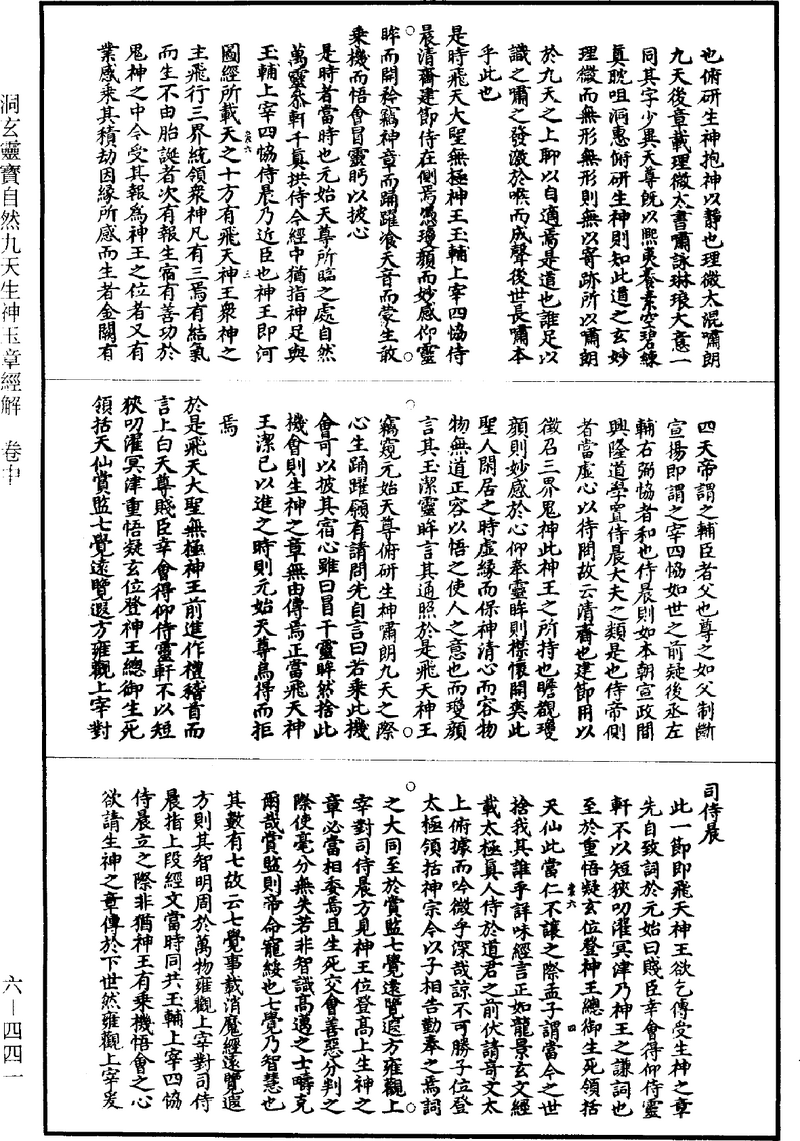 也俯研生神抱神以靜也理微太混嘯朗
九天後章載理微太書嘯詠琳琅大意一
同其字少異天尊既以熙夷養素空碧練
真眈咀洞惠俯研生神則知此道之玄妙
理微而無形無形則無以寄跡所以嘯朗
於九天之上聊以自適焉是道也誰足以
識之嘯之發激於喉而成聲後世長嘯本
乎此也
是時飛天大聖無極神王玉輔上宰四恊侍
晨清齋建節侍在側焉馮瓊顏而妙感仰靈
眸而開衿竊神章而踊躍飡天音而蒙生敢
乘機而悟會冒靈眄以披心
是時者當時也元始天尊所臨之處自然
萬靈叅軒千真拱侍今經中猶指神足與
玉輔上宰四恊侍晨乃近臣也神王即河
圖經所載天之十方有飛天神王衆神之
主飛行三界統領衆神凡有三焉有結氣
而生不由胎誕者次有報生宿有善功於
鬼神之中今受其報為神王之位者又有
業感乘其積劫因緣所感而生者金闕有
四天帝謂之輔臣者父也尊之如父制斷
宣揚即謂之宰四恊如世之前疑後丞左
輔右弼恊者和也侍晨則如本朝宣政間
興隆道學置侍晨大夫之類是也侍帝側
者當虛心以待問故云清齋也建節用以
徵召三界鬼神此神王之所持也瞻覩瓊
顏則妙感於心仰奉靈眸則襟懷開奕此
聖人閑居之時虛緣而保神清心而容物
物無道正容以悟之使人之意也而瓊顏
言其玉潔靈眸言其通照於是飛天神王
竊窺元始天尊俯研生神嘯朗九天之際
心生踊躍願有請問先自言曰若乘此機
會可以披其宿心雖曰冒干靈眸然捨此
機會則生神之章無由傳焉正當飛天神
王潔已以進之時則元始天尊烏得而拒
焉
於是飛天大聖無極神王前進作禮稽首而
言上白天尊賤臣幸會得仰侍靈軒不以短
狹叨濯冥津重悟疑玄位登神王總御生死
領括天仙賞監七覺遠覽遐方雍觀上宰對
司侍晨
此一節即飛天神王欲乞傳受生神之章
先自致詞於元始曰賤臣幸會得仰侍靈
軒不以短狹叨濯冥津乃神王之謙詞也
至於重悟疑玄位登神王總御生死領括
天仙此當仁不讓之際孟子謂當今之世
捨我其誰乎詳味經言正如龍景玄文經
載太極真人侍於道君之前伏請竒文太
上俯據而吟微乎深哉諒不可勝子位登
太極領括神宗今以子相告勤奉之焉詞
之大同至於賞監七覺遠覽遐方雍觀上
宰對司侍晨方見神王位登高上生神之
章必當相叅焉且生死交會善惡分判之
際使毫分無失若非智識高邁之士疇克
爾哉賞監則帝命寵綏也七覺乃智慧也
其數有七故云七覺事載消魔經遠覽遐
方則其智明周於萬物雍觀上宰對司侍
晨指上段經文當時同共玉輔上宰四恊
侍晨立之際非猶神王有乘機悟會之心
欲請生神之章傳於下世然雍觀上宰爰
洞玄靈寶自然九天生神玉章經解　卷中
六—四四一